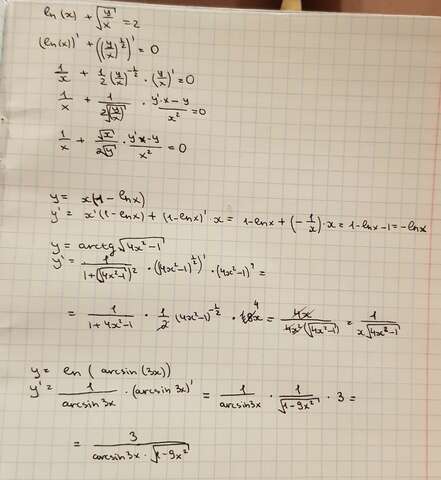 ln(x) + √(y/x) = 2
(ln(x))' + ((y/x)^(1/2))' = 0
1/x + 1/2 (y/x)^(-1/2) · (y/x)' = 0
1/x + 1/(2√(y/x)) · (y'·x - y)/x² = 0
1/x + √x/(2√y) · (y'x - y)/x² = 0
y = x(1 - lnx)
y' = x'(1 - lnx) + (1 - lnx)' · x = 1 - lnx + (-1/x) · x = 1 - lnx - 1 = -lnx
y = arctg √(4x² - 1)
y' = 1/(1 + (√(4x² - 1))²) · ((4x² - 1)^(1/2))' · (4x² - 1)' =
= 1/(1 + 4x² - 1) · 1/2 (4x² - 1)^(-1/2) · 8x 4 = 4x/(4x²(√(4x² - 1))) = 1/(x√(4x² - 1))
y = ln(arcsin(3x))
y' = 1/(arcsin3x) · (arcsin 3x)' = 1/(arcsin3x) · 1/√(1 - 9x²) · 3 =
= 3/(arcsin3x · √(1 - 9x²))